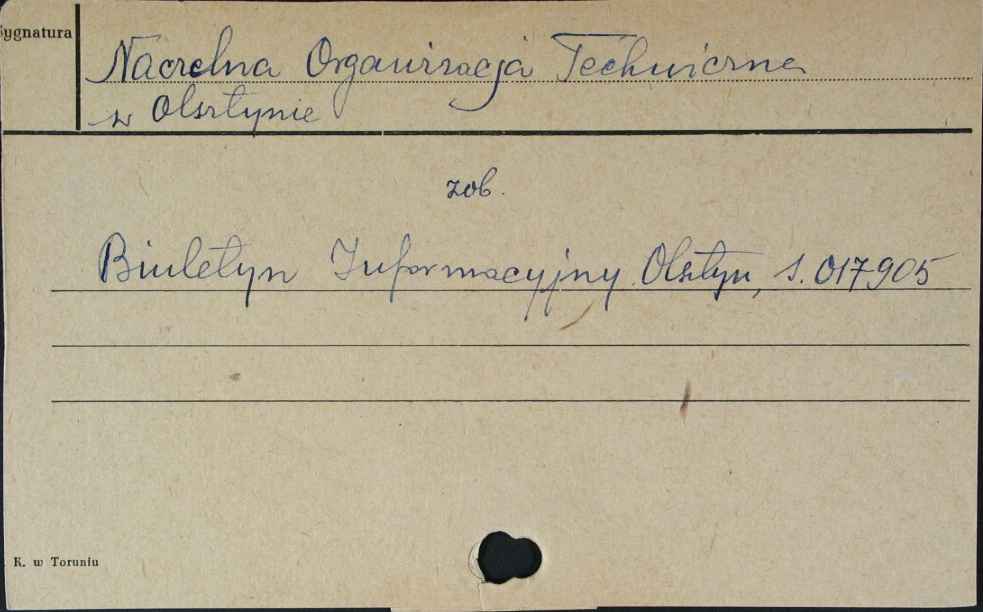 Sygnatura
Naczelna Organizacja Techniczna
w Olsztynie
zob.
Biuletyn Informacyjny. Olsztyn, S. 017905
K. w Toruniu